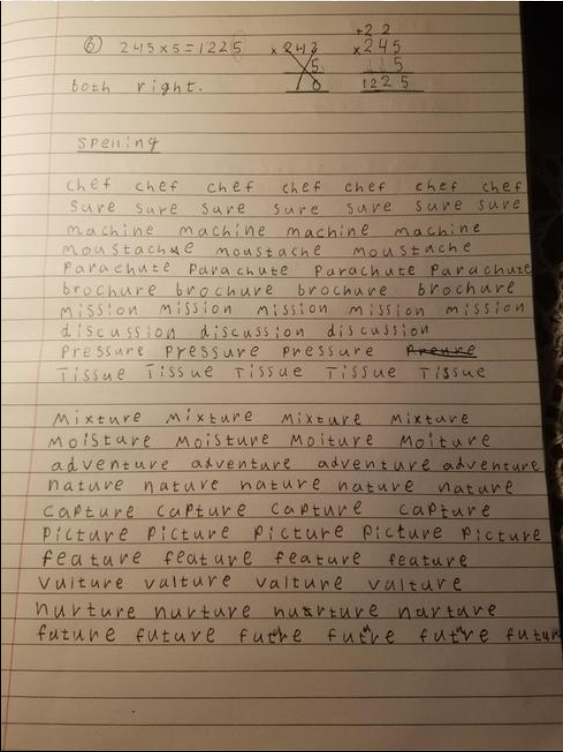 +2 2
6 245 x 5 = 1225 x 243 x 245
5 5
both right. 0 1225
Spelling
chef chef chef chef chef chef chef
Sure sure sure sure sure sure sure
machine machine machine machine
moustache moustache moustache
Parachute Parachute Parachute Parachute
brochure brochure brochure brochure
mission mission mission mission mission
discussion discussion discussion
Pressure Pressure Pressure
Tissue Tissue Tissue Tissue Tissue
Mixture Mixture Mixture Mixture
Moisture Moisture Moiture Moiture
adventure adventure adventure adventure
nature nature nature nature nature
capture capture capture capture
Picture Picture Picture Picture Picture
feature feature feature feature
Vulture valture valture valture
nurture nurture nurture nurture
future future future future future futur